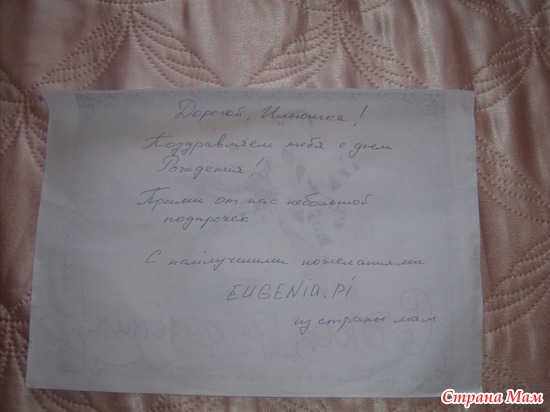 Дорогой, Илюшка!
Поздравляем тебя с днем
Рождения!
Прими от нас небольшой
подарочек.
С наилучшими пожеланиями
EUGENIA.PI
из страны мам
Страна Мам